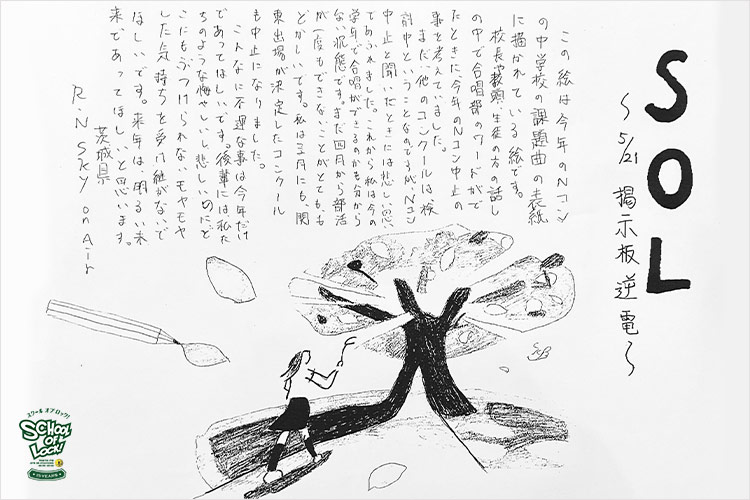 SOL
〜5/21 掲示板逆電〜
この絵は今年のNコン
の中学校の課題曲の表紙
に描かれている絵です。
校長や教頭、生徒の方の話し
の中で合唱部のワードがで
たときに、今年のNコン中止の
事を考えていました。
まだ他のコンクールは検
討中ということなのですが、Nコン
中止と聞いたときには悲しい思い
であふれました。これから私は今の
学年で合唱ができるのかも分から
ない状態です。まだ四月から部活
が一度もできないことがとても、も
どかしいです。私は三月にも、関
東出場が決定したコンクール
も中止になりました。
こんなに不運な事は今年だけ
であってほしいです。後輩には私た
ちのような悔やしいし悲しいのにど
こにもぶつけられないモヤモヤ
した気持ちを受け継がないで
ほしいです。来年は、明るい未
来であってほしいと思います。
茨城県
R.N Sky on Air
スクール オブ ロック!
SCHOOL
OF
LOCK!
15 YEARS